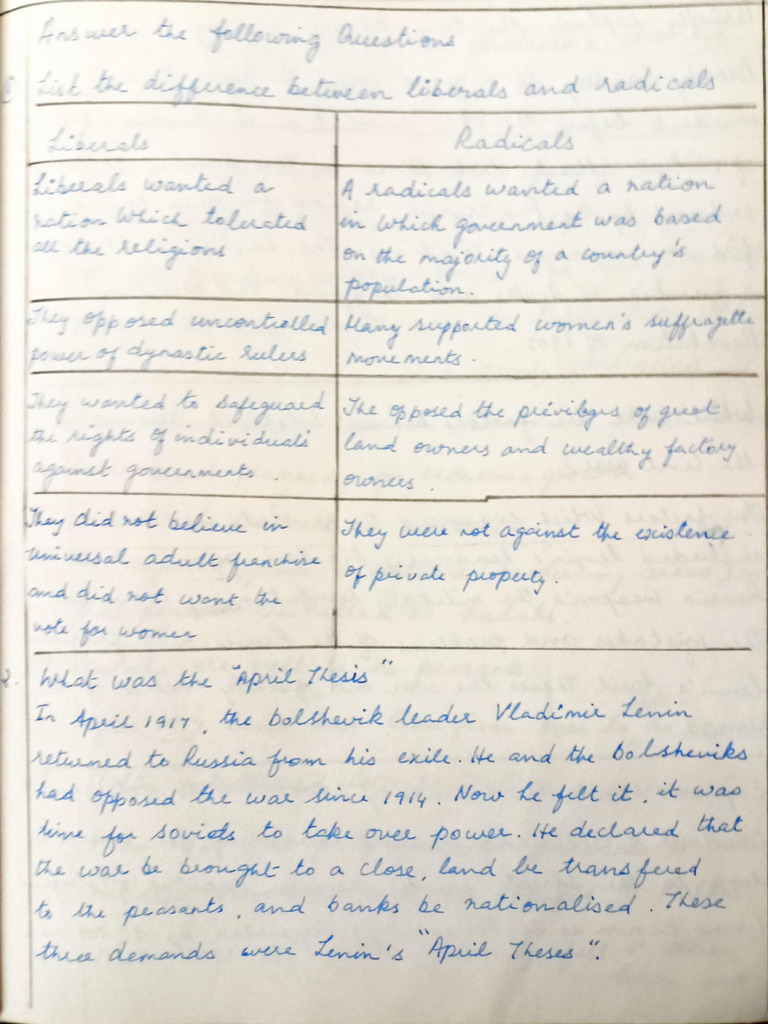 Answer the following Questions
① List the difference between liberals and radicals
Liberals
Radicals
Liberals wanted a
nation which tolerated
all the religions
A radicals wanted a nation
in which government was based
on the majority of a country's
population.
They opposed uncontrolled
power of dynastic rulers
Many supported women's suffragette
movements.
They wanted to safeguard
the rights of individuals
against governments.
The opposed the privileges of great
land owners and wealthy factory
owners.
They did not believe in
universal adult franchise
and did not want the
vote for women
They were not against the existence
of private property.
2. What was the "April Thesis"
In April 1917, the bolshevik leader Vladimir Lenin
returned to Russia from his exile. He and the bolsheviks
had opposed the war since 1914. Now he felt it, it was
time for soviets to take over power. He declared that
the war be brought to a close, land be transfered
to the peasants, and banks be nationalised. These
three demands were Lenin's "April Theses".